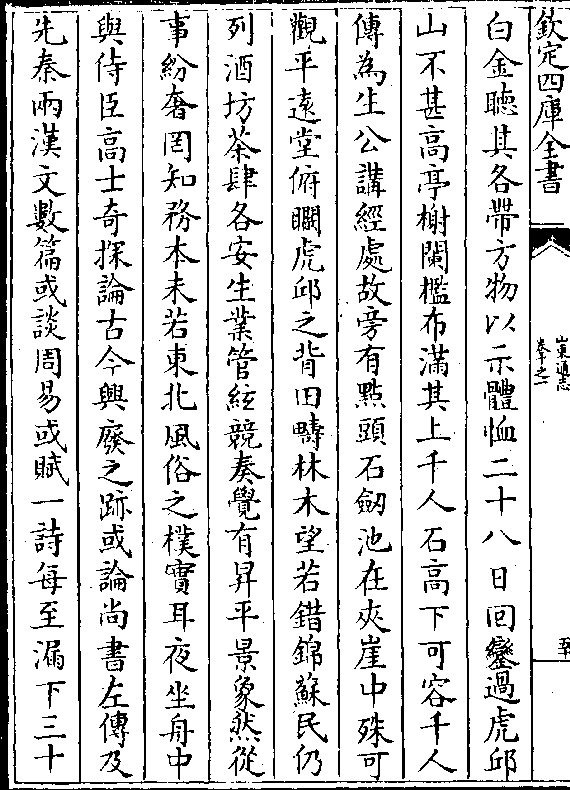 欽定四庫全書
山東通志
卷
白金聽其各帶方物以示體恤二十八日回鑾過虎邱
山不甚高亭榭闌檻布滿其上千人石高下可容千人
傳為生公講經處故旁有點頭石劔池在夾崖中殊可
觀平遠堂俯瞷虎邱之背田疇林木望若錯錦蘇民仍
列酒坊茶肆各安生業管絃競奏覺有昇平景象然從
事紛奢罔知務本未若東北風俗之樸實耳夜坐舟中
與侍臣高士奇探論古今興廢之跡或論尚書左傳及
先秦兩漢文數篇或談周易或賦一詩每至漏下三十